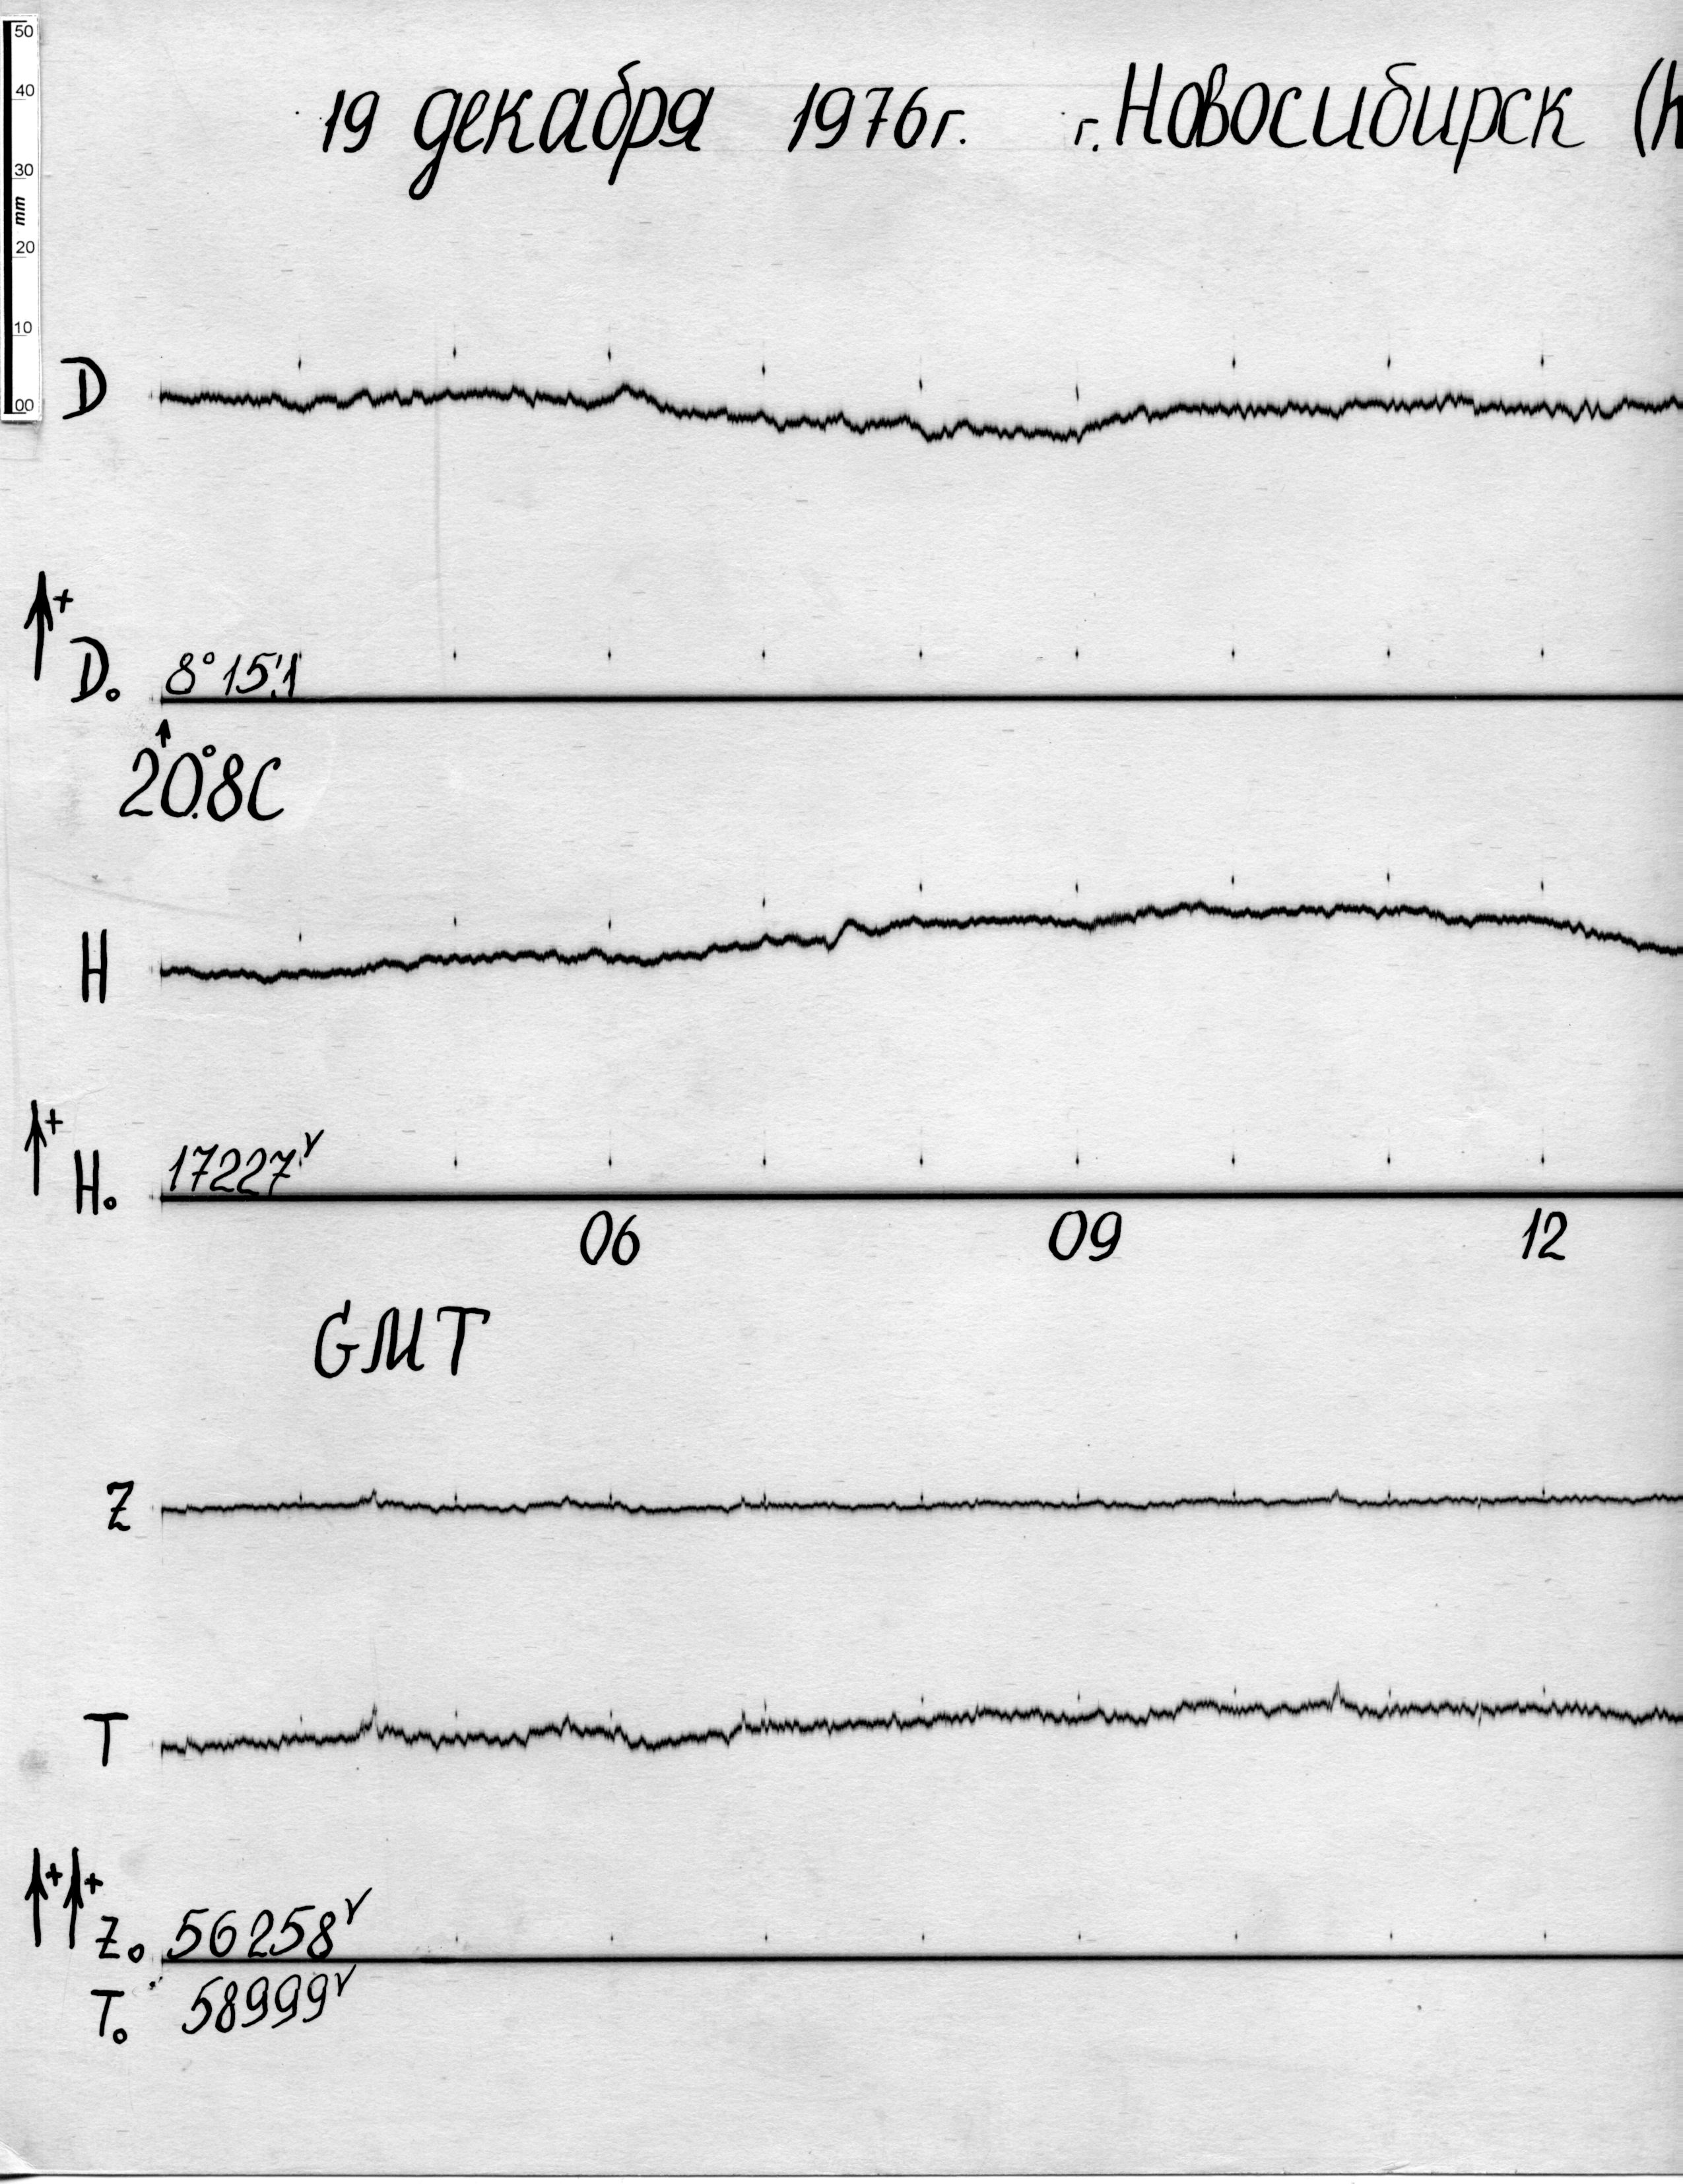 50
40
30
mm
20
10
00
19 декабря 1976г. г. Новосибирск (К
D
+
D₀ 8°15.'1
20.°8C
H
+
H₀ 17227γ
06 09 12
GMT
Z
T
+ +
Z₀ 56258γ
T₀ 58999γ